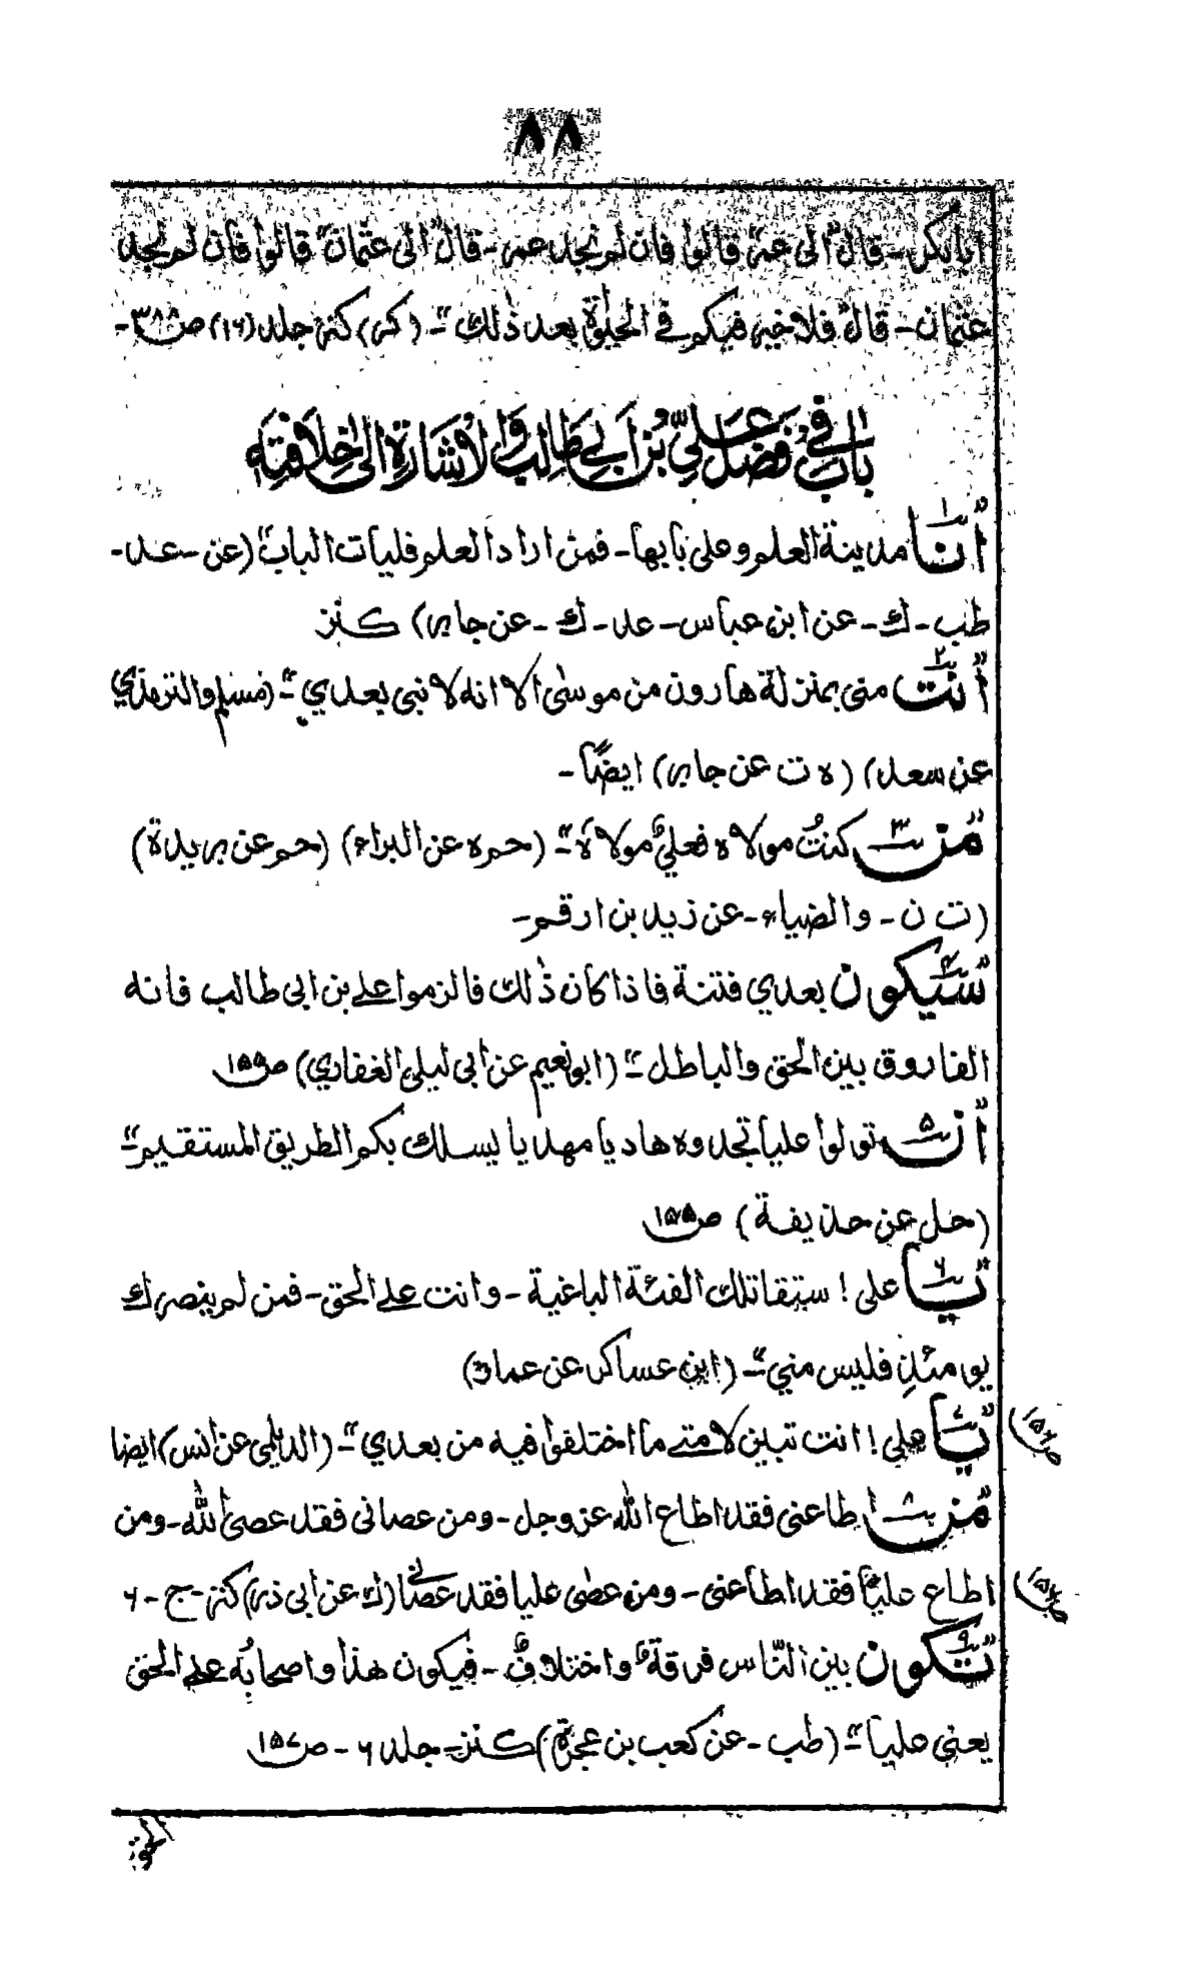 ۸۸
ابابكر - قال الى عمر قالوا فان لم نجد عمر - قال الى عثمان قالوا فان لم نجد
عثمان - قال فلا خير فيكم في الحيٰوة بعد ذٰلك" - (كر) كنز جلد (۱۶) ص۳۸۸ -
باب في فضل علي بن ابي طالب والاشارة الى خلافته
"۱ أنا مدينة العلم وعلى بابها - فمن اراد العلم فليات الباب" (عن - عد -
طب - ك - عن ابن عباس - عد - ك - عن جابر) كنز
"۲ أنت منى بمنزلة هارون من موسىٰ الا انه لا نبى بعدي" - (مسلم والترمذي
عن سعد) (ه ت عن جابر) ايضًا -
"۳ من كنتُ مولاه فعليٌ مولاه" - (حم ه عن البراء) (حم عن بريدة)
(ت ن - والضياء - عن زيد بن ارقم -
"۴ سيكون بعدي فتنة فاذا كان ذٰلك فالزموا علے بن ابى طالب فانه
الفاروق بين الحق والباطل" - (ابو نعيم عن ابى ليلى الغفاري) ص۱۵۵
"۵ أن تولوا عليا تجدوه هاديا مهديا يسلك بكم الطريق المستقيم" -
(حل عن حذيفة) ص۱۵۵
"۶ يا على! ستقاتلك الفئة الباغية - وانت علے الحق - فمن لم ينصرك
يومئذٍ فليس مني" - (ابن عساكر عن عمار)
"۷ يا على! انت تبين لامتے ما اختلفوا فيه من بعدي" - (الديلمي عن انس) ايضا
ص۱۵۶
"۸ من اطاعنى فقد اطاع الله عز وجل - ومن عصانى فقد عصى الله - ومن
اطاع عليًا فقد اطاعنى - ومن عصٰى عليا فقد عصانى (ك عن ابى ذر) كنز - ج - ۶
ص۱۵۶
"۹ تكون بين النّاس فرقةٌ واختلافٌ - فيكون هذا واصحابُه علے الحق
يعنى عليا" - (طب - عن كعب بن عجرة) كنز - جلد ۶ - ص۱۵۷
الحق